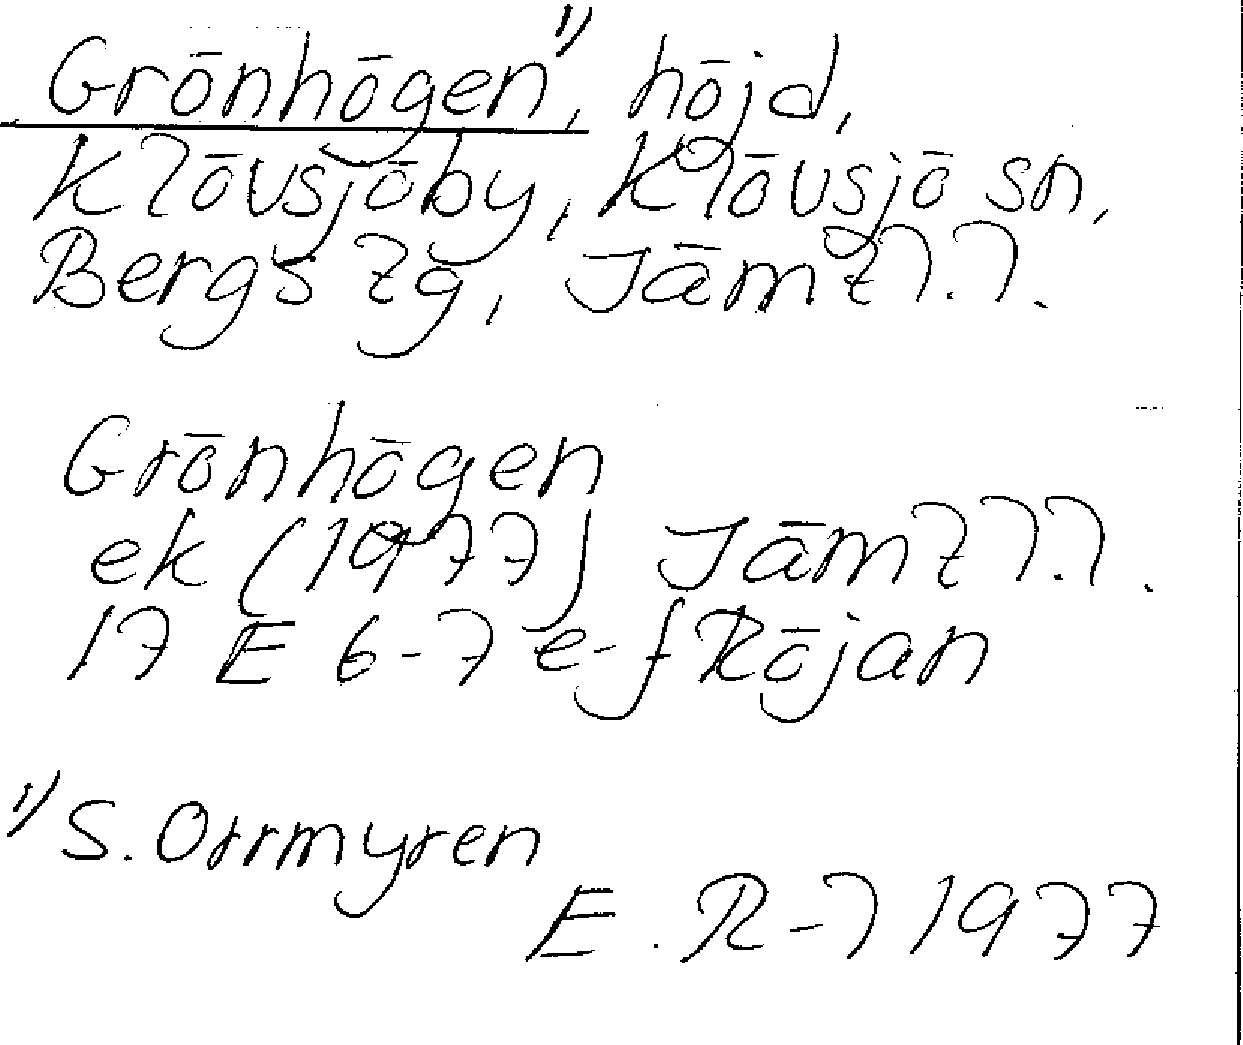 Grönhögen¹⁾, höjd,
Klövsjöby, Klövsjö sn,
Bergs tg, Jämtl.l.
Grönhögen
ek (1977) Jämtl.l.
17 E 6-7 e-f Röjan
¹⁾ S. Orrmyren
E. R-l 1977